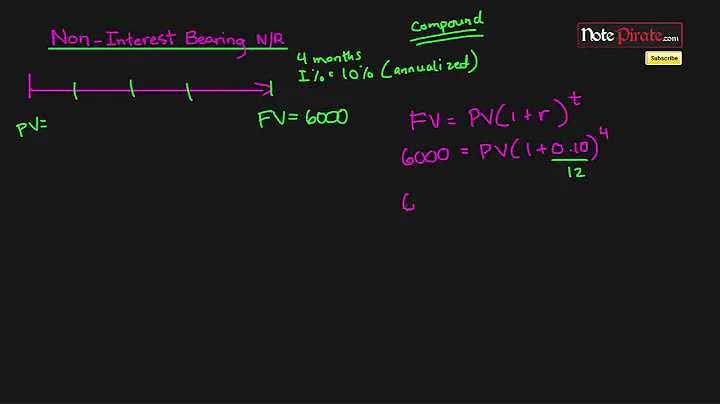 Non-Interest Bearing N/R
compound
NotePirate.com
Subscribe
4 months
I% = 10% (annualized)
PV=
FV= 6000
FV = PV(1+r)^t
6000 = PV(1+0.10/12)^4
6